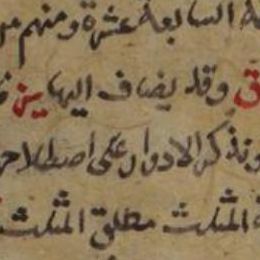 السابعة عشرة ومنهم من
ق وقد يضاف اليها ين
ونذكر الادوار على اصطلاح
المثلث مطلق المثلث